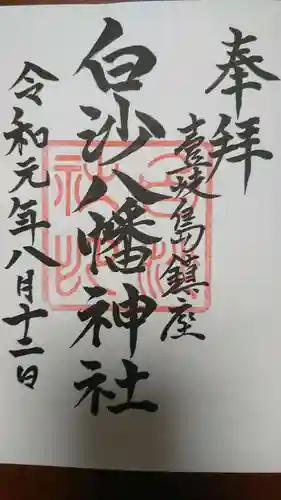 奉拝
壹岐島鎮座
白沙八幡神社
令和元年八月十二日